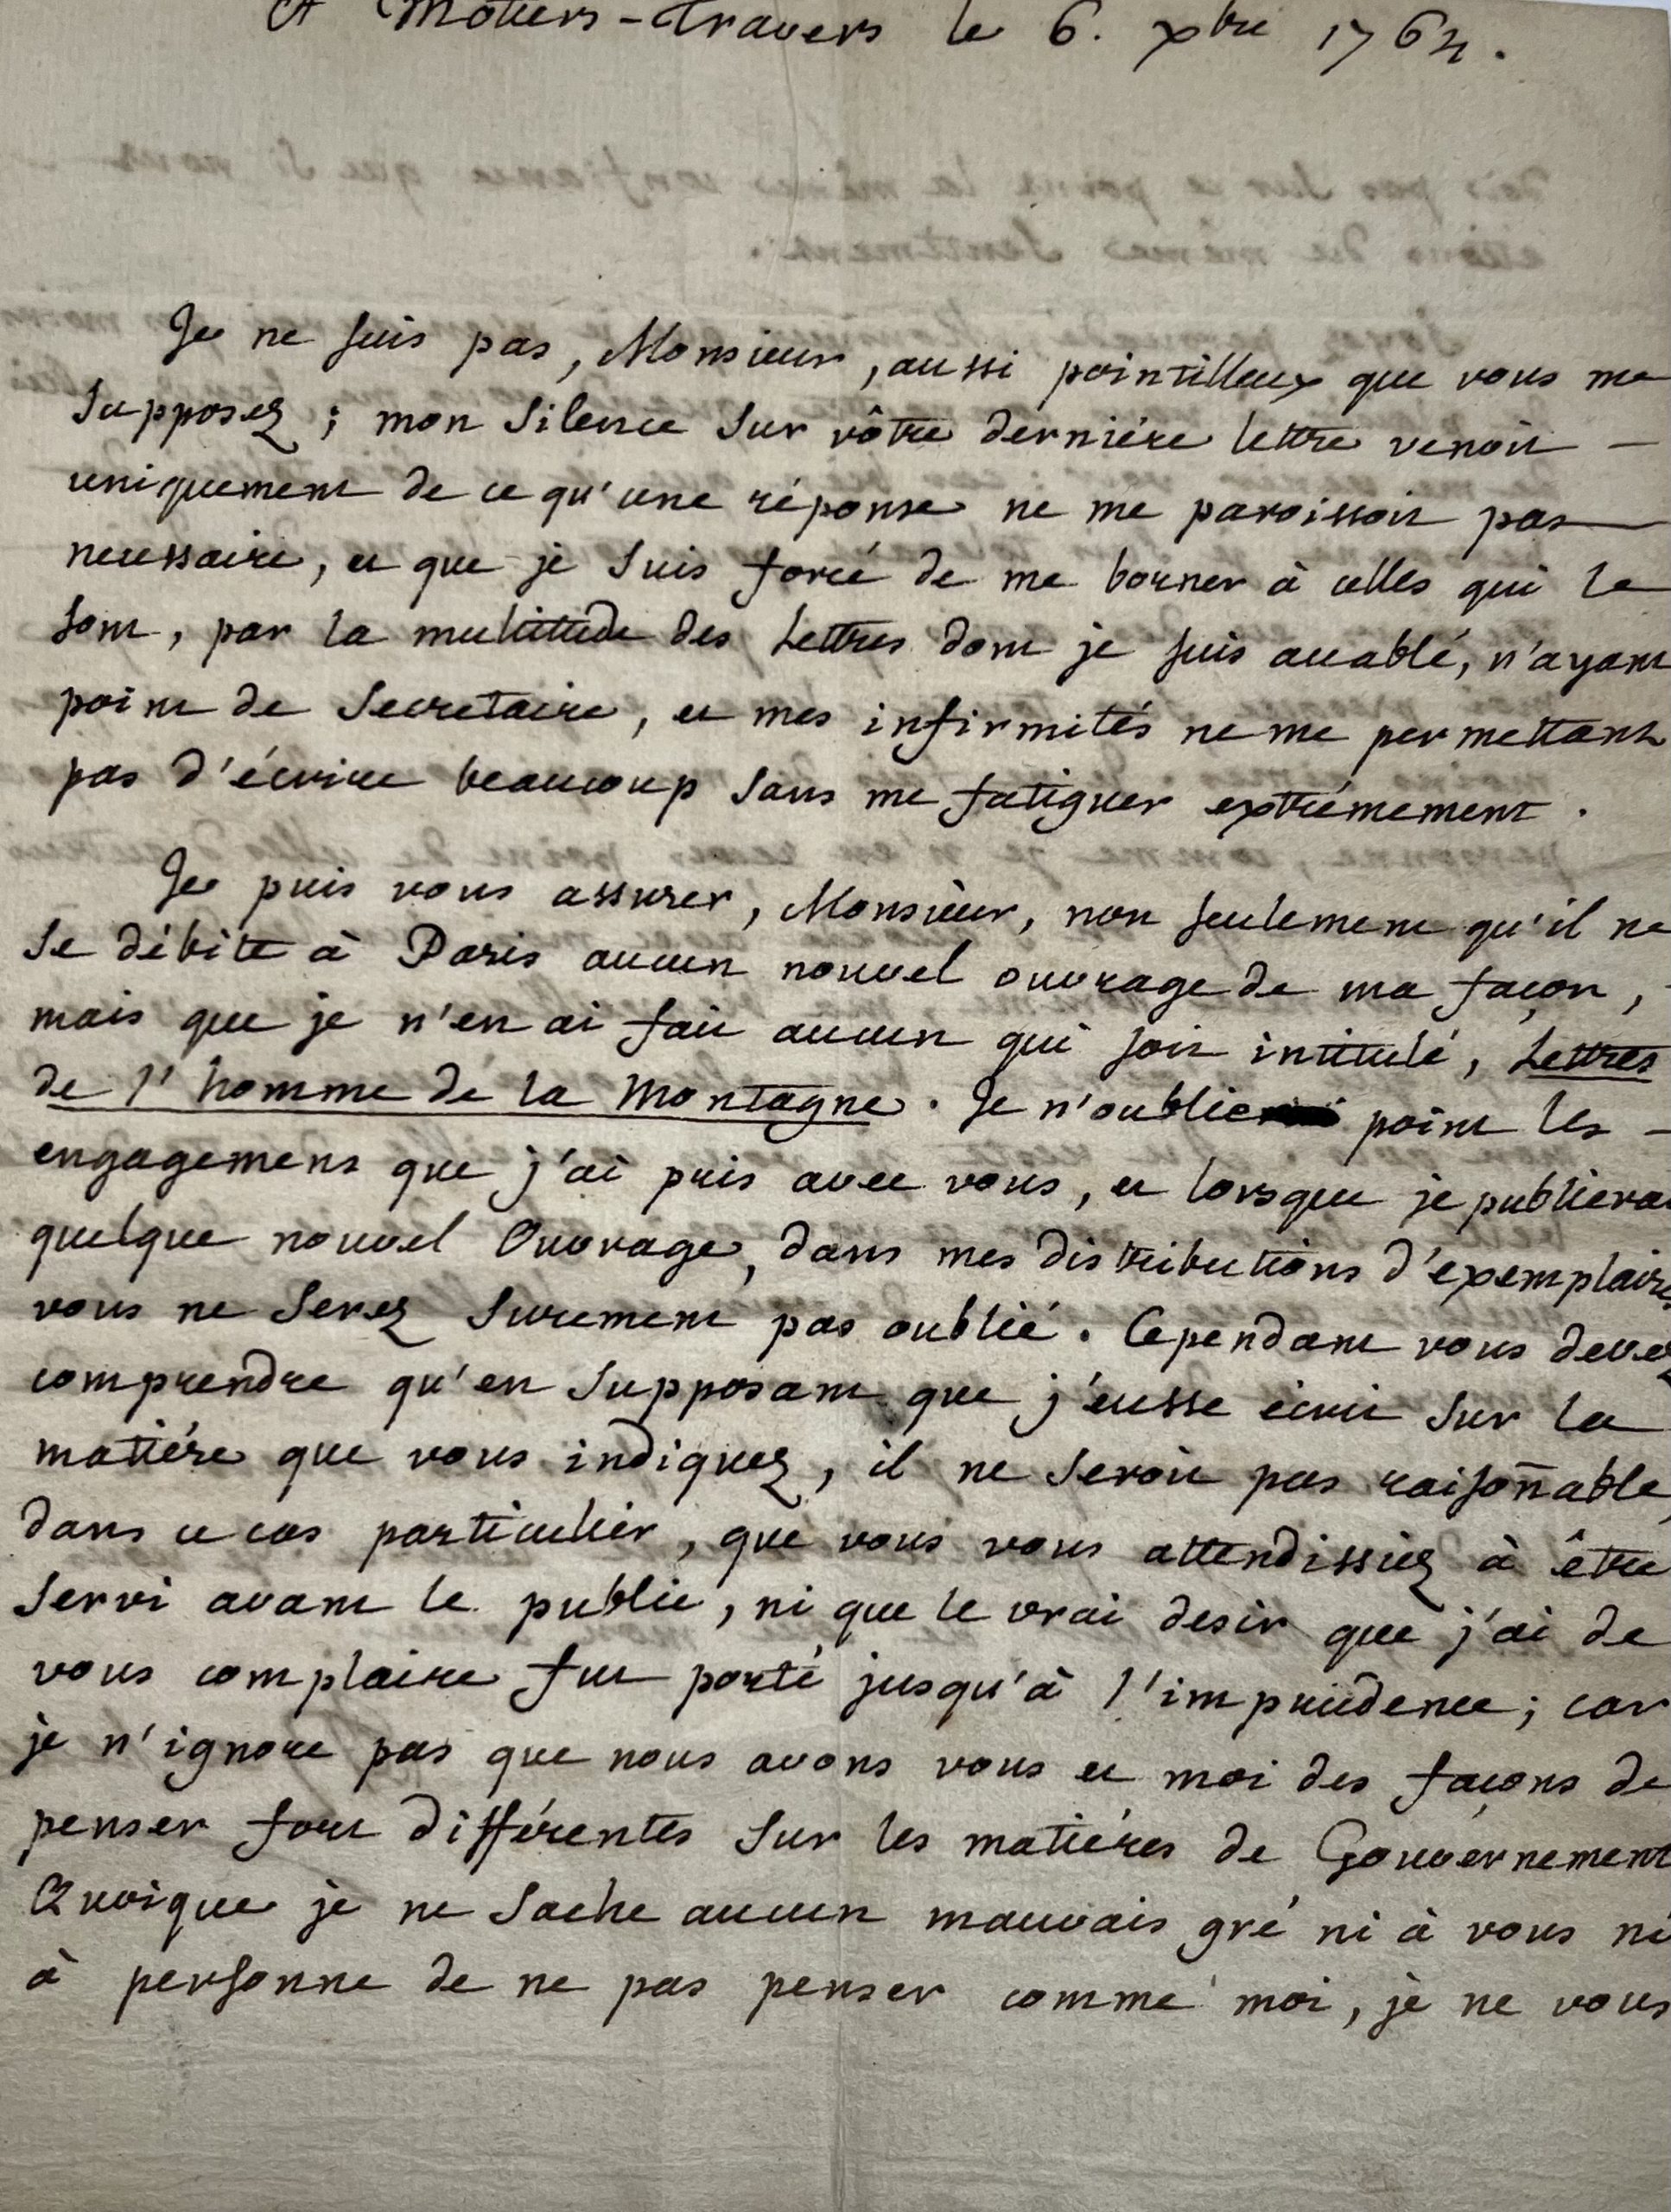 A Motiers-Travers le 6. xbre 1764.
Je ne suis pas, Monsieur, aussi pointilleux que vous me
supposez; mon silence sur vôtre derniére lettre venoit —
uniquement de ce qu'une réponse ne me paroissoit pas
necessaire, et que je suis forcé de me borner à celles qui le
sont, par la multitude des Lettres dont je suis accablé, n'ayant
point de Secretaire, et mes infirmités ne me permettant
pas d'écrire beaucoup sans me fatiguer extrémement.
Je puis vous assurer, Monsieur, non seulement qu'il ne
se débite à Paris aucun nouvel ouvrage de ma façon,
mais que je n'en ai fait aucun qui soit intitulé, Lettres
de l'homme de la Montagne. Je n'oublie point les —
engagemens que j'ai pris avec vous, et lorsque je publierai
quelque nouvel Ouvrage, dans mes distributions d'exemplaires
vous ne serez surement pas oublié. Cependant vous devez
comprendre qu'en supposant que j'eusse écrit sur la
matiére que vous indiquez, il ne seroit pas raisoñable,
dans ce cas particulier, que vous vous attendissiez à être
servi avant le public, ni que le vrai desir que j'ai de
vous complaire fut porté jusqu'à l'imprudence; car
je n'ignore pas que nous avons vous et moi des façons de
penser fort différentes sur les matiéres de Gouvernement
Quoique je ne sache aucun mauvais gré ni à vous ni
à personne de ne pas penser comme moi, je ne vous